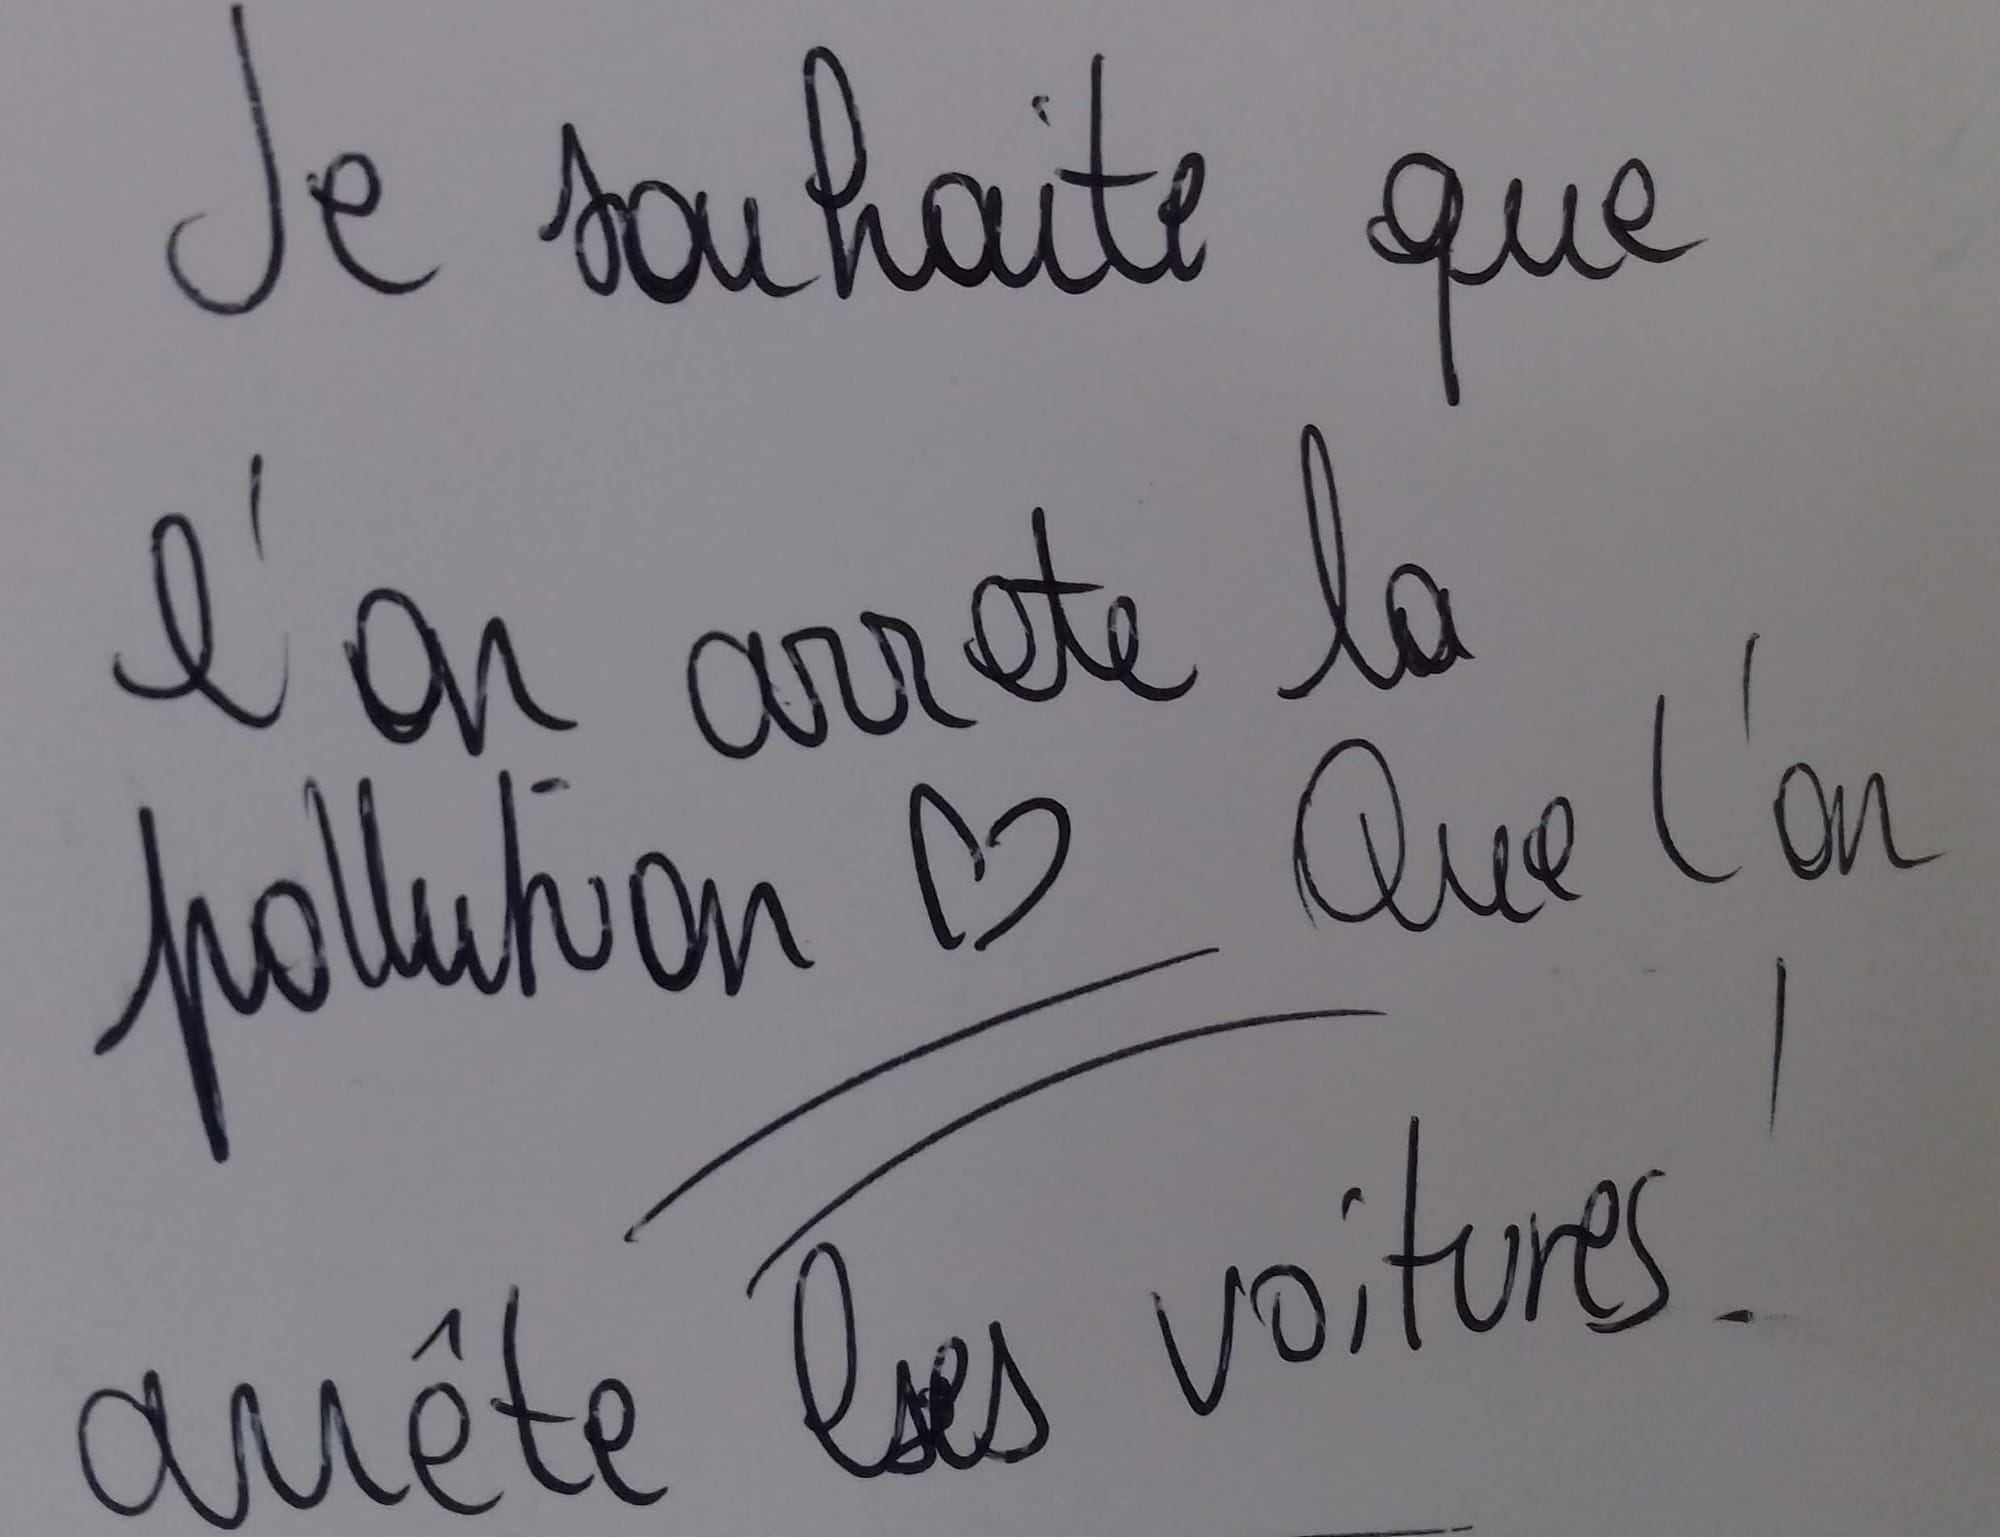 Je souhaite que
l'on arrete la
pollution ♡ Que l'on
arrête les voitures!